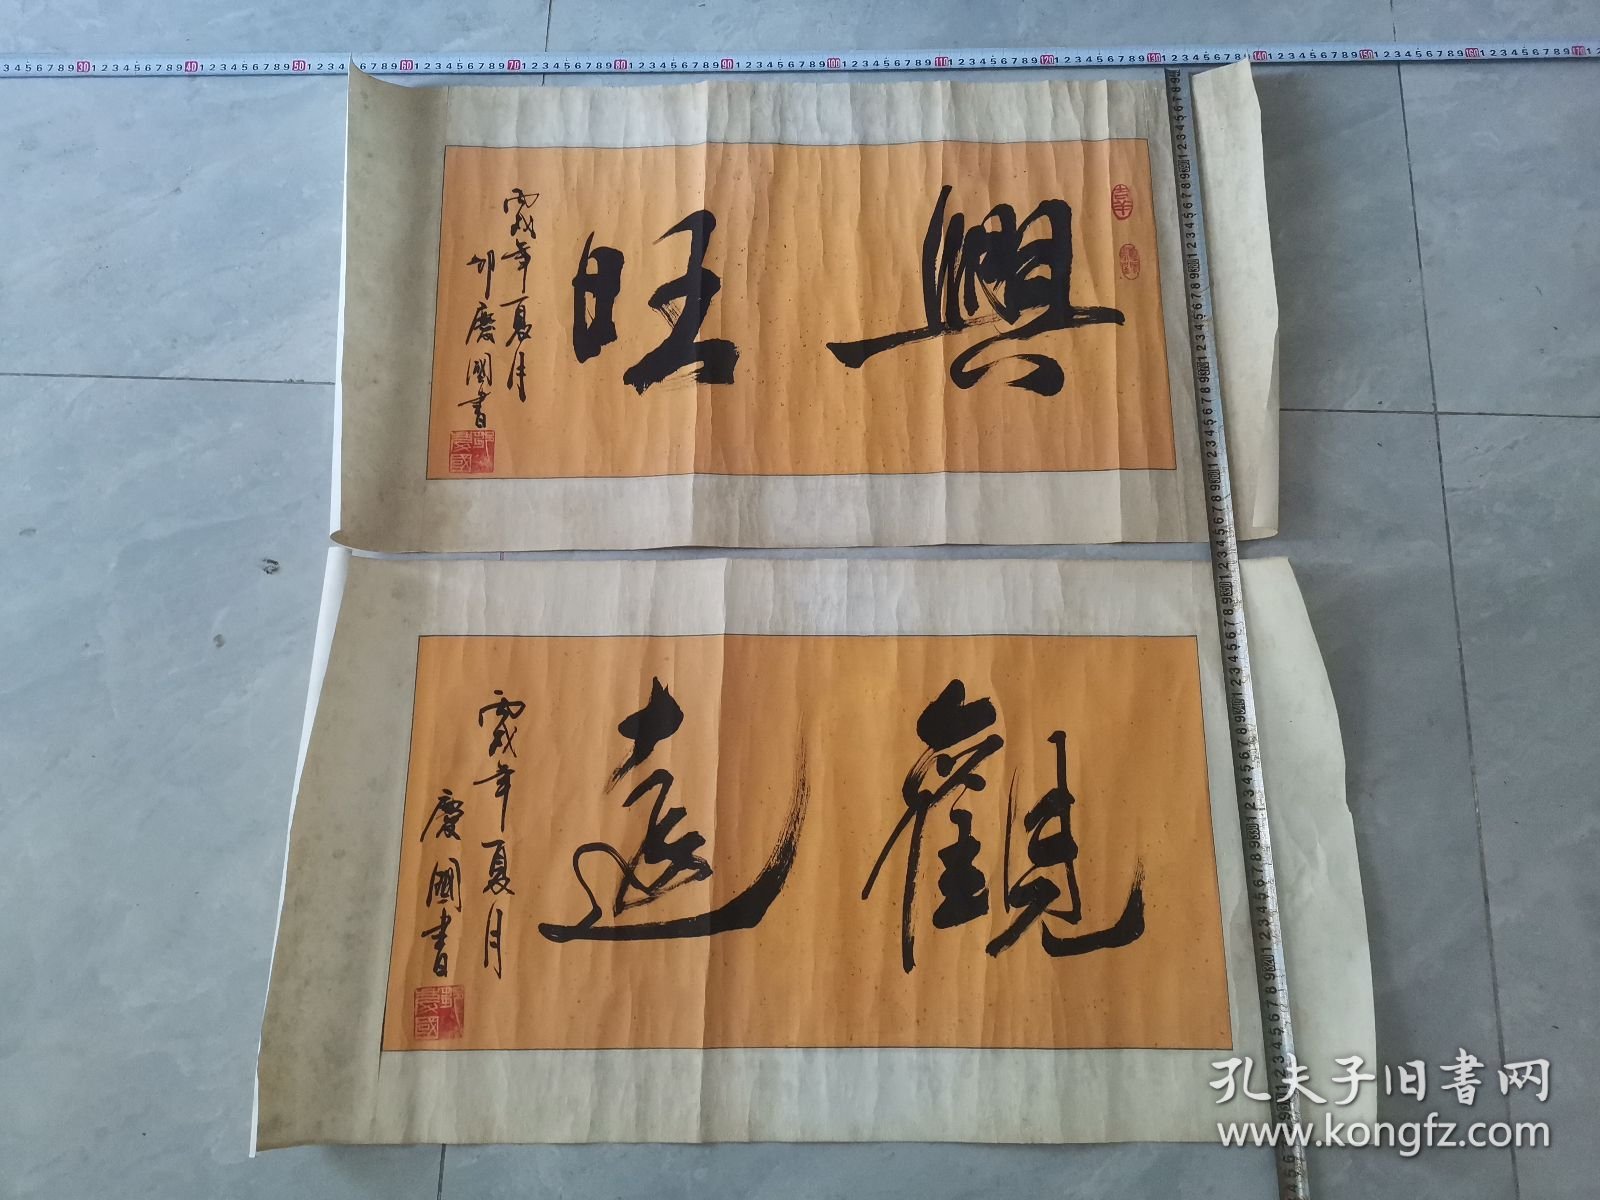 興旺
丙戌年夏月
邯慶國書
觀遠
丙戌年夏月
慶國書
孔夫子旧書网
www.kongfz.com